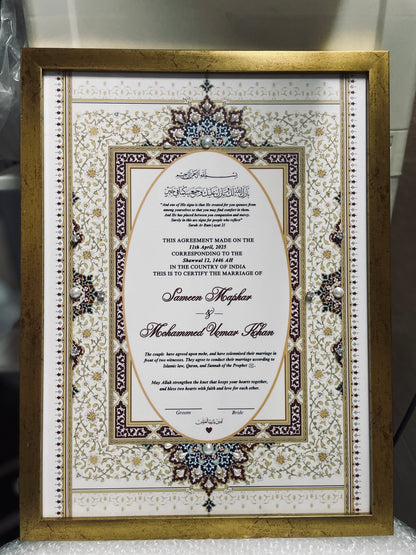 بسم الله الرحمن الرحيم
"And one of His signs is that He created for you spouses from
among yourselves so that you may find comfort in them.
And He has placed between you compassion and mercy.
Surely in this are signs for people who reflect"
Surah Ar Rum | ayat 21
THIS AGREEMENT MADE ON THE
11th April, 2025
CORRESPONDING TO THE
Shawwal 12, 1446 AH
IN THE COUNTRY OF INDIA
THIS IS TO CERTIFY THE MARRIAGE OF
Sameen Mazhar
&
Mohammed Uemar Khan
The couple have agreed upon mehr, and have solemnized their marriage in
front of two witnesses. They agree to conduct their marriage according to
Islamic law, Quran, and Sunnah of the Prophet ﷺ.
May Allah strengthen the knot that keeps your hearts together,
and bless two hearts with faith and love for each other.
Groom Bride